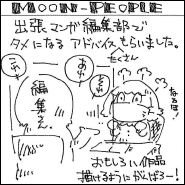 MOON-PEOPLE
出張マンガ編集部で
タメになる アドバイスもらいました。
たくさん
なるほど!
あれ
これ
それ
編集さん
おもしろい作品
描けるようにがんばろー!